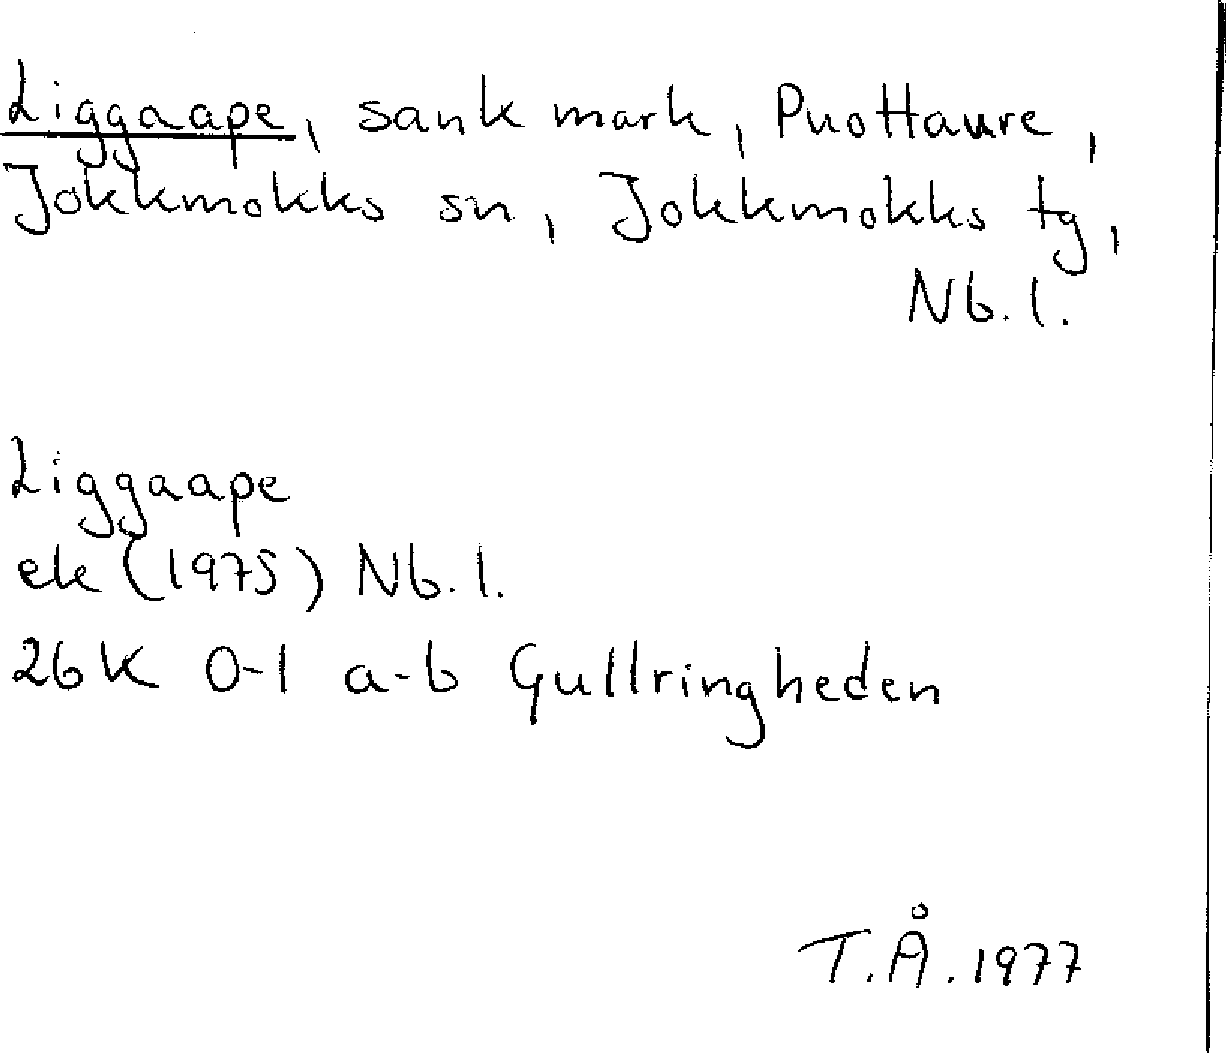 Liggaape, sank mark, Puottaure,
Jokkmokks sn, Jokkmokks tg,
Nb. l.
Liggaape
ek (1975) Nb. l.
26K 0-1 a-b Gullringheden
T.Å. 1977